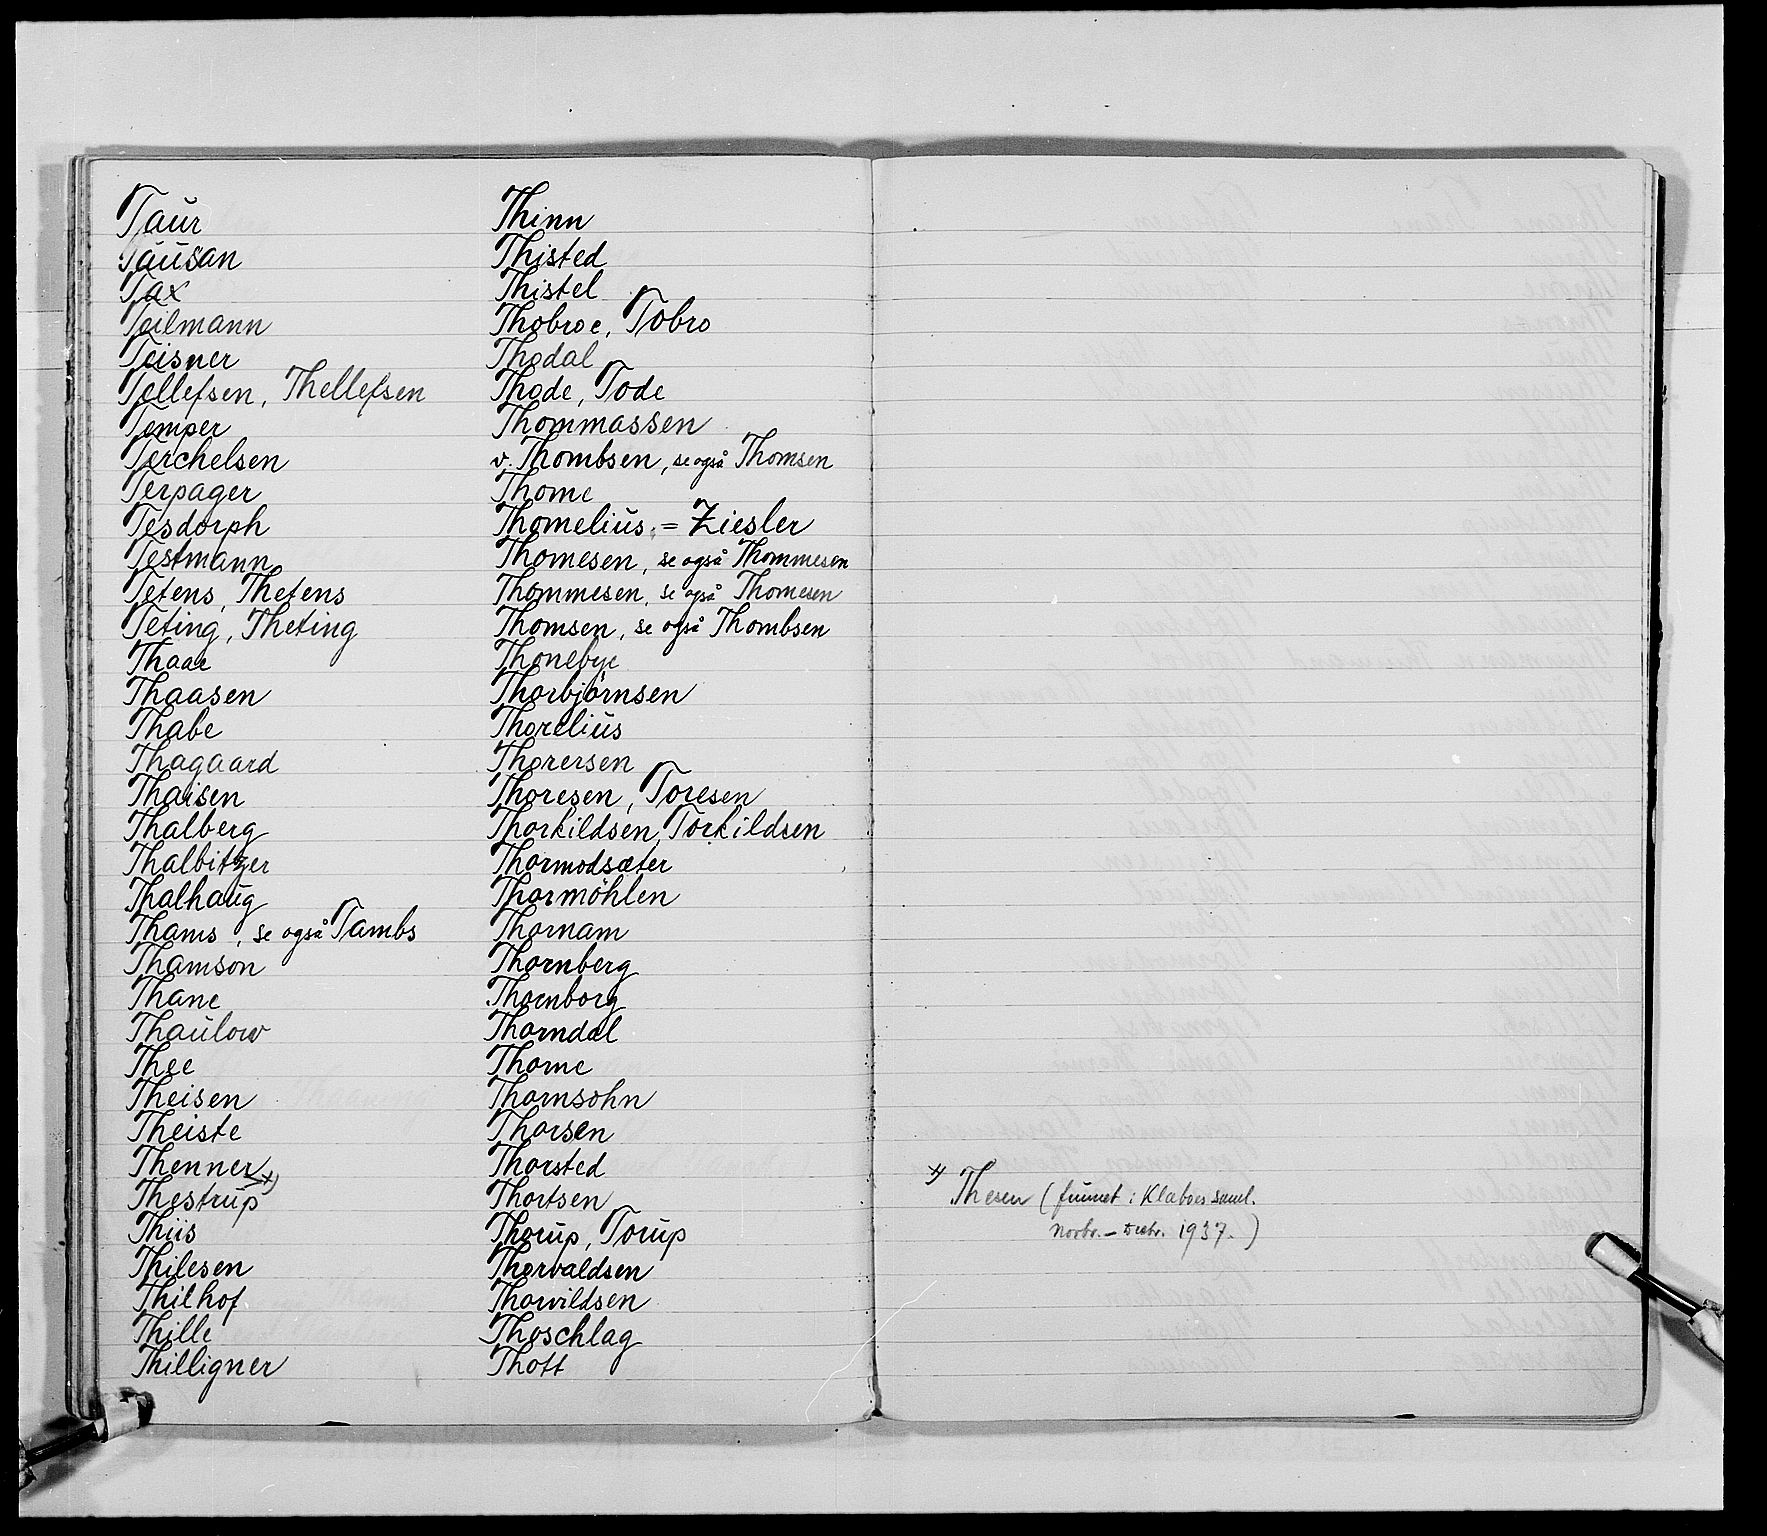 Taur
Tausan
Tax
Teilmann
Teisner
Tellefsen, Thellefsen
Temper
Terchelsen
Terpager
Tesdorph
Testmann
Tetens, Thetens
Teting, Theting
Thaar
Thaasen
Thabe
Thagaard
Thaisen
Thalberg
Thalbitzer
Thalhaug
Thams, se også Tambs
Thamson
Thane
Thaulow
Thee
Theisen
Theiste
Thenner
x)
Thestrup
Thiis
Thilesen
Thilhof
Thille
Thilligner
Thinn
Thisted
Thistel
Thobroe, Tobro
Thodal
Thode, Tode
Thommassen
v. Thombsen, se også Thomsen
Thome
Thomelius, = Ziesler
Thomesen, se også Thommesen
Thommesen, se også Thomesen
Thomsen, se også Thombsen
Thonebye
Thorbjörnsen
Thorelius
Thorersen
Thoresen, Toresen
Thorkildsen, Torkildsen
Thormodsæter
Thormöhlen
Thornam
Thornberg
Thornborg
Thorndal
Thorne
Thornsohn
Thorsen
Thorsted
Thortsen
Thorup, Torup
Thorvaldsen
Thorvildsen
Thoschlag
Thott
x) Thesen (funnet i Klæboes saml.
Novbr. – Decbr. 1937.)